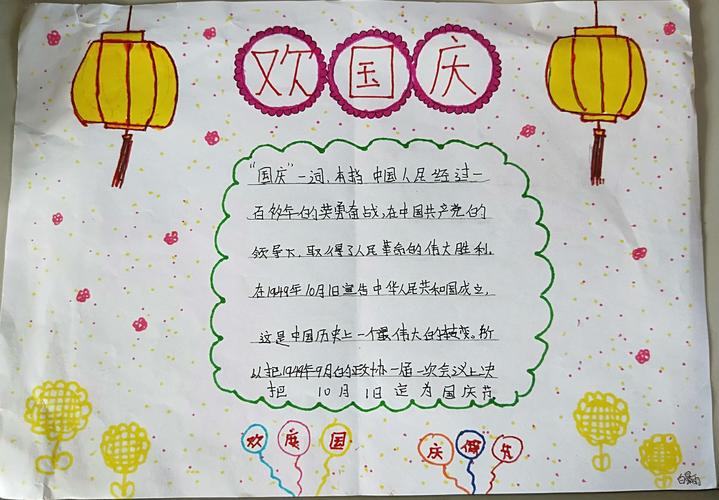 欢国庆
"国庆"一词,本指中国人民经过一
百多年的英勇奋战,在中国共产党的
领导下,取得了人民革命的伟大胜利。
在1949年10月1日宣告中华人民共和国成立,
这是中国历史上一个最伟大的转变。所
以把1949年9月的政协一届一次会议上决
把 10月1日定为国庆节
欢度国 庆佳节